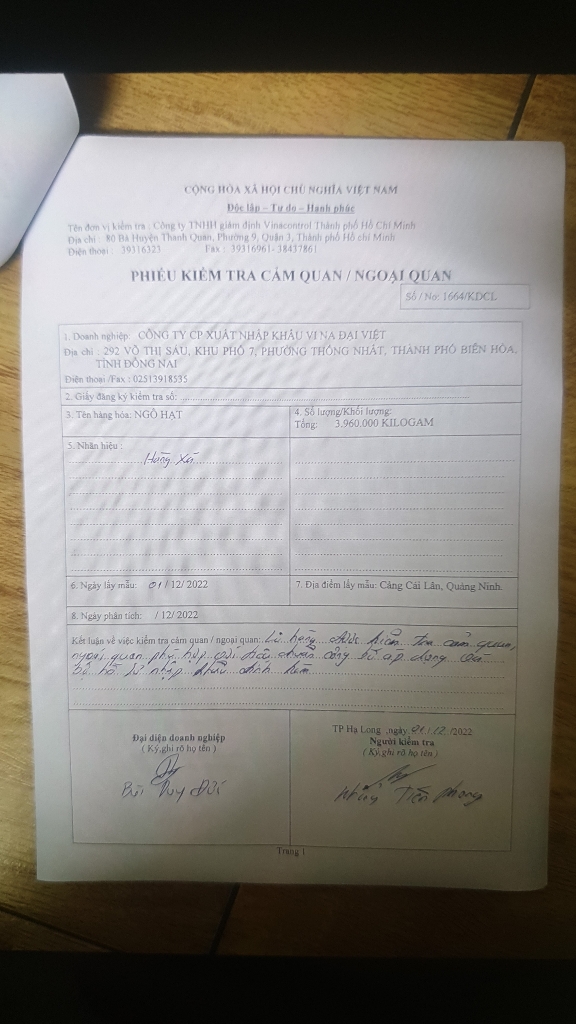 CỘNG HÒA XÃ HỘI CHỦ NGHĨA VIỆT NAM
Độc lập – Tự do – Hạnh phúc
Tên đơn vị kiểm tra : Công ty TNHH giám định Vinacontrol Thành phố Hồ Chí Minh
Địa chỉ : 80 Bà Huyện Thanh Quan, Phường 9, Quận 3, Thành phố Hồ chí Minh
Điện thoại : 39316323 Fax : 39316961- 38437861
PHIẾU KIỂM TRA CẢM QUAN / NGOẠI QUAN
Số / No: 1664/KDCL
1. Doanh nghiệp: CÔNG TY CP XUẤT NHẬP KHẨU VI NA ĐẠI VIỆT
Địa chỉ : 292 VÕ THỊ SÁU, KHU PHỐ 7, PHƯỜNG THỐNG NHẤT, THÀNH PHỐ BIÊN HÒA,
TỈNH ĐỒNG NAI
Điện thoại /Fax : 02513918535
2. Giấy đăng ký kiểm tra số:
3. Tên hàng hóa: NGÔ HẠT
4. Số lượng/Khối lượng:
Tổng: 3.960.000 KILOGAM
5. Nhãn hiệu :
Hàng xá
6. Ngày lấy mẫu: 01/12/2022
7. Địa điểm lấy mẫu: Cảng Cái Lân, Quảng Ninh.
8. Ngày phân tích: /12/2022
Kết luận về việc kiểm tra cảm quan / ngoại quan: Lô hàng được kiểm tra cảm quan,
ngoại quan phù hợp với tiêu chuẩn công bố áp dụng và
bộ hồ sơ nhập khẩu đính kèm
Đại diện doanh nghiệp
( Ký,ghi rõ họ tên )
Bùi Duy Đức
TP Hạ Long ,ngày 01/12/2022
Người kiểm tra
( Ký,ghi rõ họ tên )
Tiến Phong
Trang 1